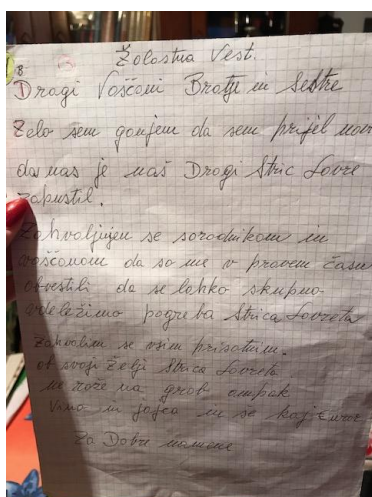 Žalostna Vest.
8
Dragi Vaščani Bratje in Sestre
Zelo sem ganjen da sem prijel
da nas je naš Dragi Stric Lovre
zapustil.
Zahvaljujem se sorodnikom in
vaščanom da so me v pravem času
obvestili da se lahko skupno
vdeležimo pogreba Strica Lovreta
Zahvalim se vsim prisotnim.
ob svoji želji Strica Lovreta
ne rože na grob ampak
Vina in jajca in še kaj
Za Dobre namene